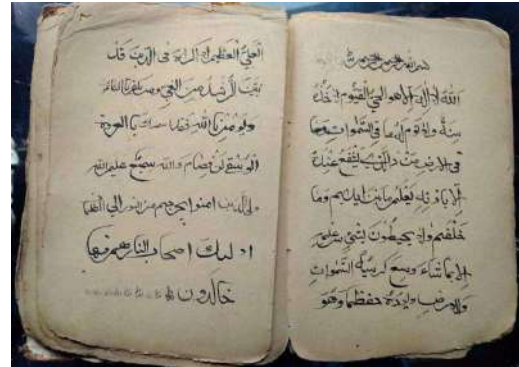 بسم الله الرحمن الرحيم
الله لا إله الا هو الحي القيوم لا تاخذه
سنة ولا نوم له ما في السموات وما
في الارض من ذا الذي يشفع عنده
الا باذنه يعلم ما بين ايديهم وما
خلفهم ولا يحيطون بشئ من علمه
الا بما شاء وسع كرسيه السموات
والارض ولا يؤده حفظهما وهو
العلي العظيم لا اكراه في الدين قد
تبين الرشد من الغي فمن يكفر بالطاغوت
ويؤمن بالله فقد استمسك بالعروة
الوثقى لا انفصام والله سميع عليم الله
ولي الذين امنوا يخرجهم من النور الى الظلما
اولئك اصحاب النار هم فيها
خالدون